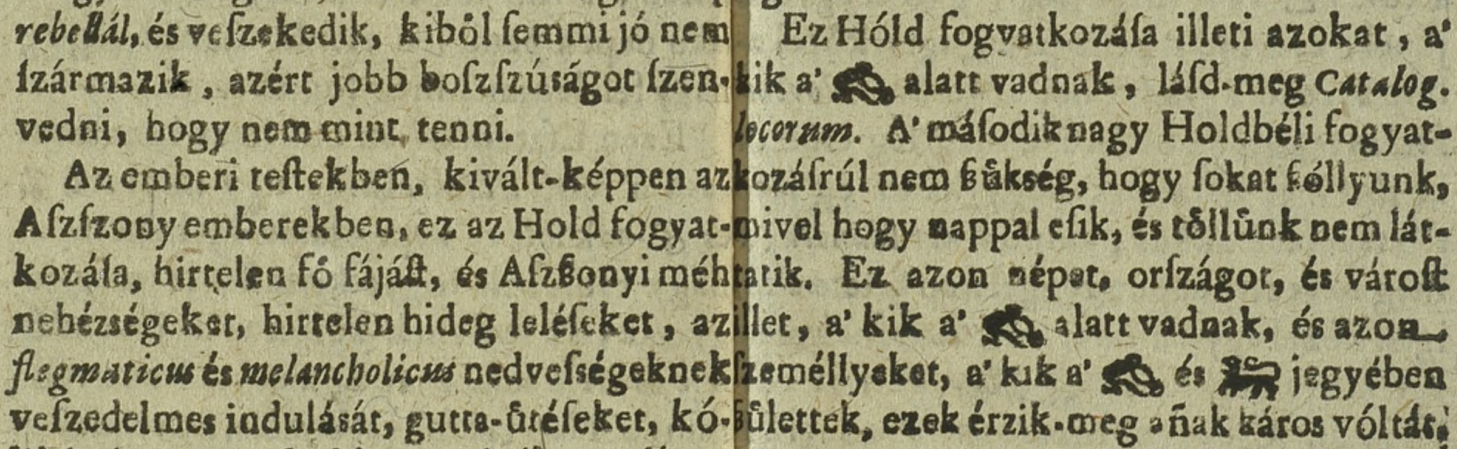 rebellál, és veſzekedik, kiből ſemmi jó nem
ſzármazik, azért jobb boſzſzúságot ſzen-
vedni, hogy nem mint tenni.
Az emberi teſtekben, kivált-képpen az
Aſzſzony emberekben, ez az Hold fogyat-
kozáſa, hirtelen fő fájáſt, és Aſzßonyi méh
nehézségeket, hirtelen hideg leléſeket, az
flegmaticus és melancholicus nedveſségeknek
veſzedelmes indulását, gutta-ůtéſeket, kó-
Ez Hóld fogyatkozáſa illeti azokat, a'
kik a' alatt vadnak, láſd-meg Catalog.
locorum. A' máſodik nagy Holdbéli fogyat-
kozáſrúl nem ßůkség, hogy ſokat ßóllyunk,
mivel hogy nappal eſik, és tőllůnk nem lát-
tatik. Ez azon népet, orſzágot, és vároſt
illet, a' kik a' alatt vadnak, és azon
ſzeméllyeket, a' kik a' és jegyében
ßůlettek, ezek érzik-meg añak káros vóltát.